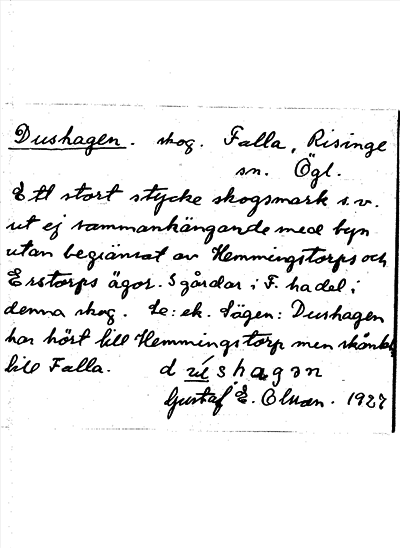 Dushagen. skog. Falla, Risinge
sn. Ögl.
Ett stort stycke skogsmark s.v.
ut ej sammanhängande med byn
utan begränsat av Hemmingstorps och
Erstorps ägor. 5 gårdar i F. ha del i
denna skog. Le: ek. Sägen: Dushagen
har hört till Hemmingstorp men skänkts
till Falla.
Gustaf E. 1927